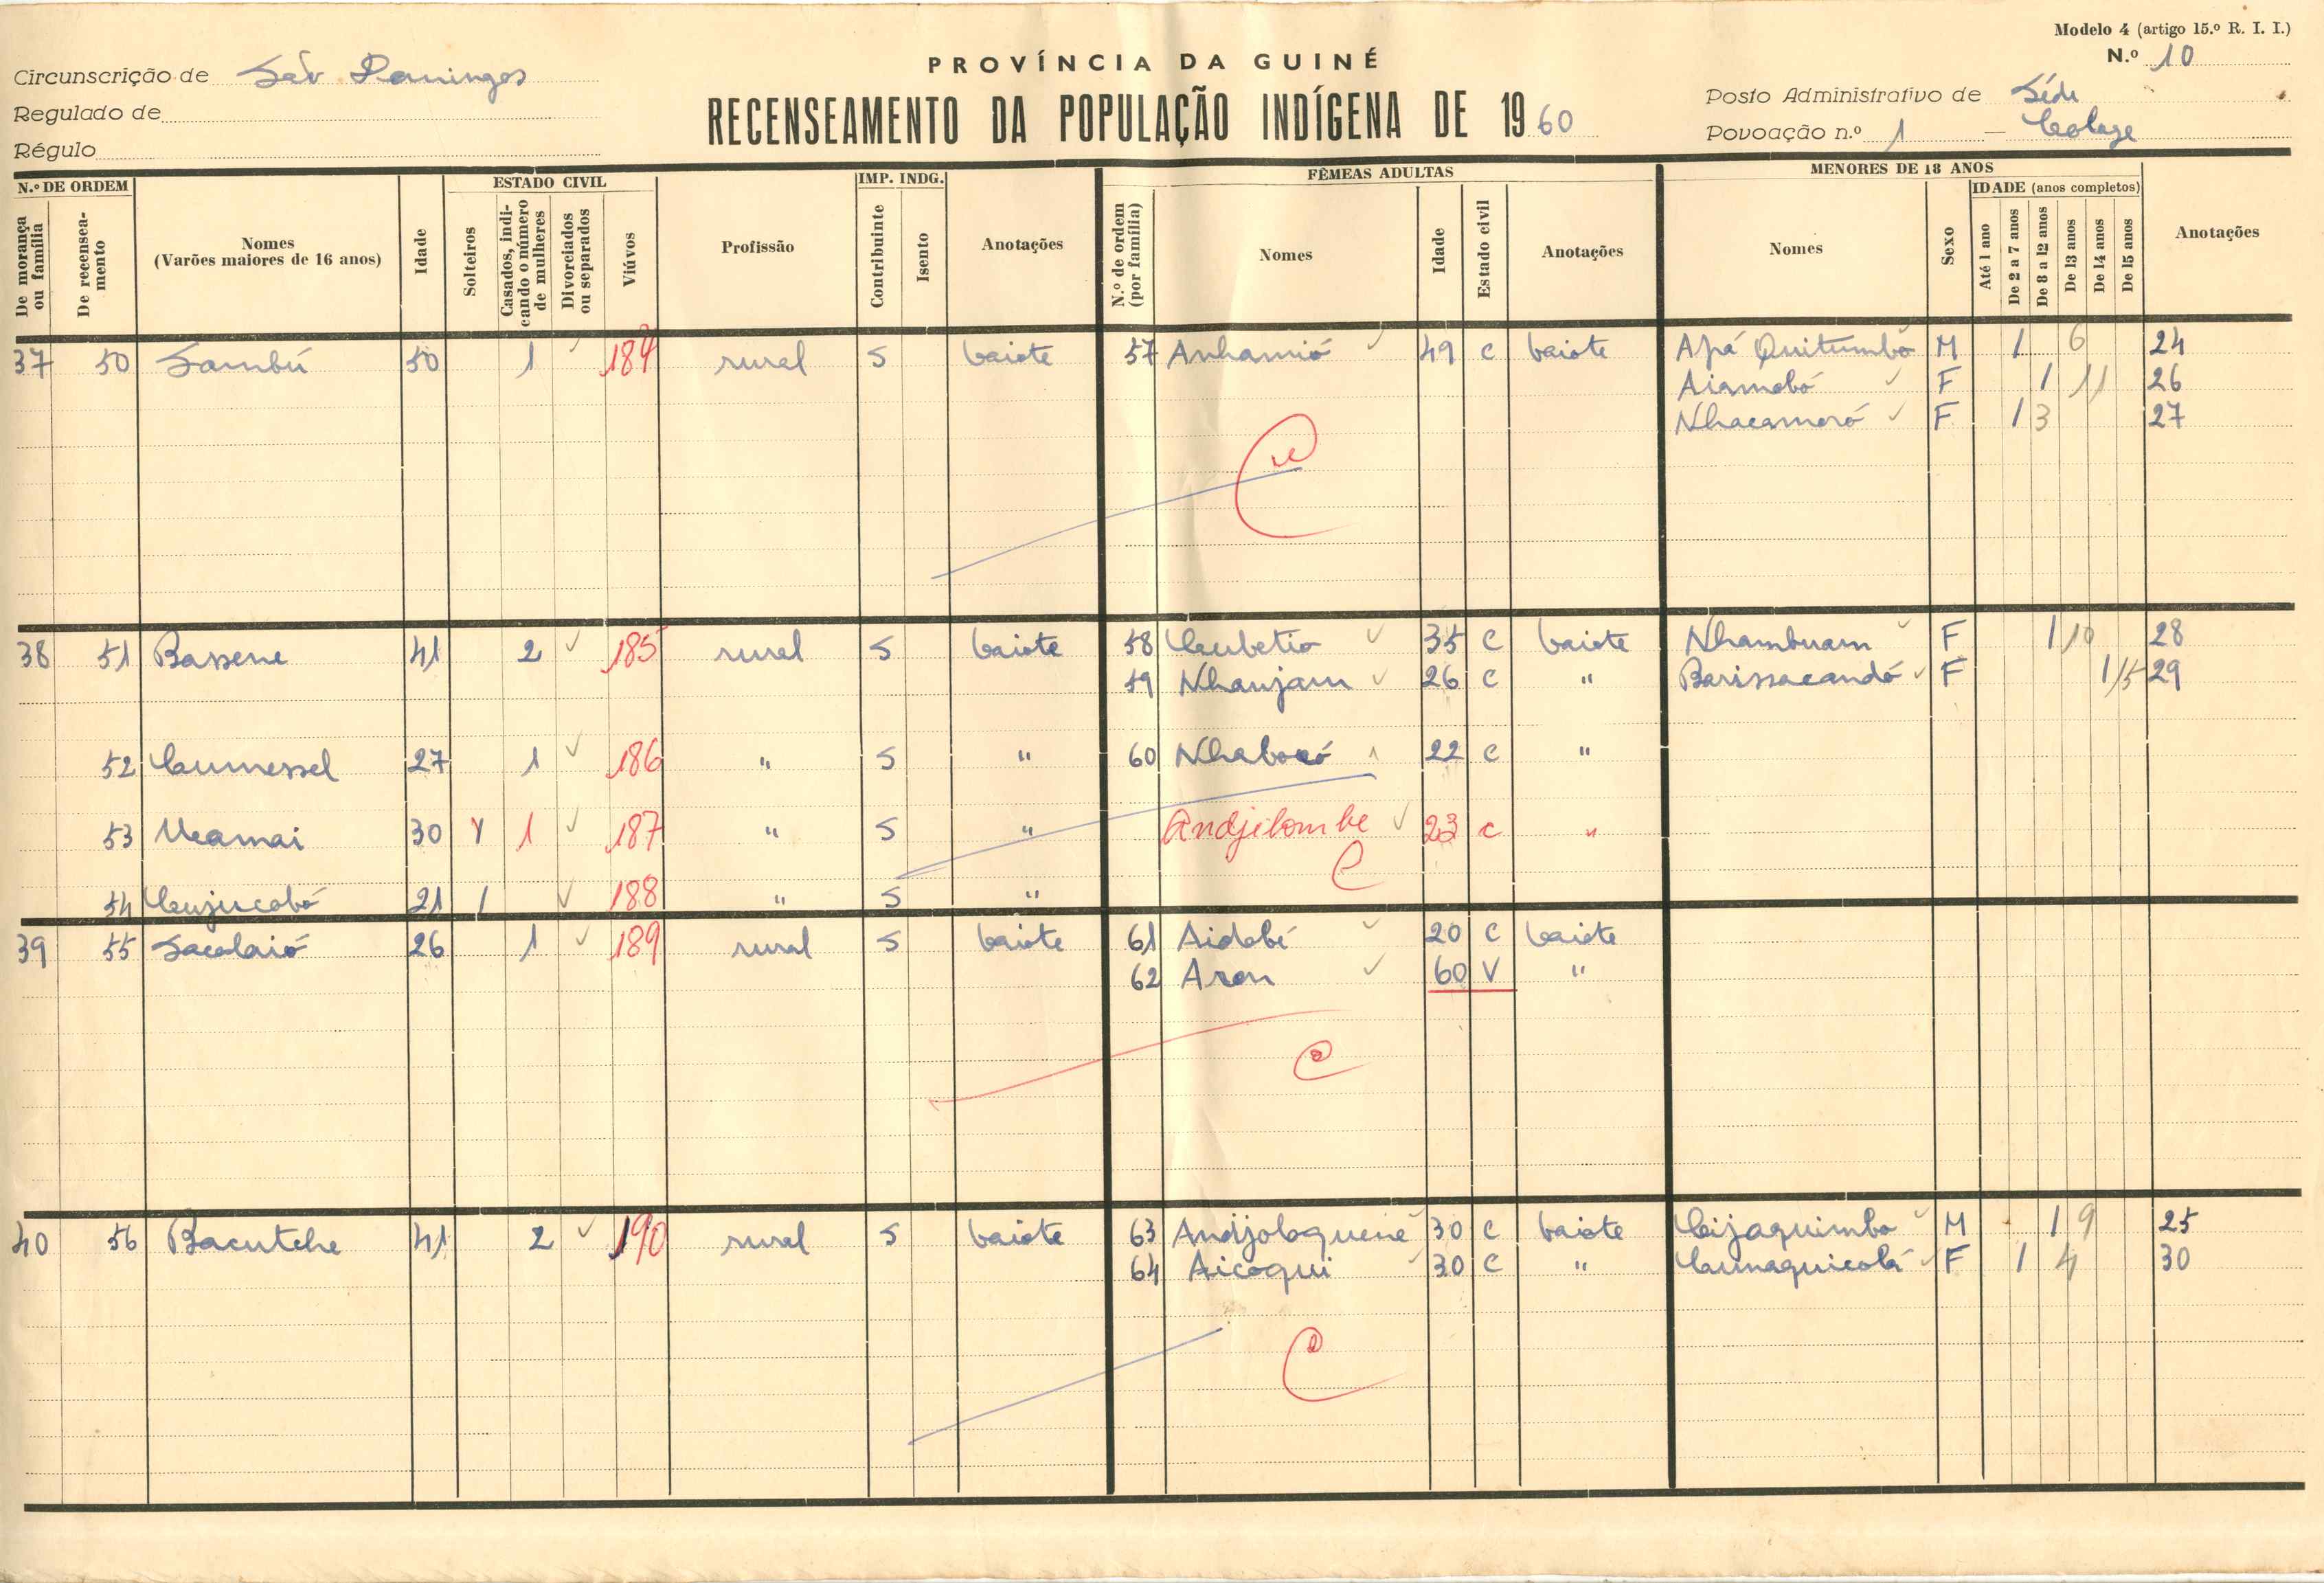 Modelo 4 (artigo 15.º R. I. I.)
N.º 10
PROVÍNCIA DA GUINÉ
RECENSEAMENTO DA POPULAÇÃO INDÍGENA DE 1960
Circunscrição de São Domingos
Regulado de
Régulo
Posto Administrativo de Séde
Povoação n.º 1 —
N.º DE ORDEM
De morança ou família
De recenseamento
Nomes
(Varões maiores de 16 anos)
Idade
ESTADO CIVIL
Solteiros
Casados, indicando o número de mulheres
Divorciados ou separados
Viúvos
Profissão
IMP. INDG.
Contribuinte
Isento
Anotações
FÊMEAS ADULTAS
N.º de ordem (por família)
Nomes
Idade
Estado civil
Anotações
MENORES DE 18 ANOS
Nomes
Sexo
IDADE (anos completos)
Até 1 ano
De 2 a 7 anos
De 8 a 12 anos
De 13 anos
De 14 anos
De 15 anos
Anotações
37 50 Sambú 50 1 184 rural S baiote 57 Anhamió 49 C baiote Apá Quitumbo M 1 6 24
Aiamobó F 1 11 26
Nhacamoró F 1 3 27
38 51 Bassene 41 2 185 rural S baiote 58 35 C baiote Nhambuam F 1 10 28
59 Nhanjam 26 C " Barissacandó F 1 15 29
52 Cumessel 27 1 186 " S " 60 22 C "
53 30 1 187 " S " Andjilombe 23 c "
54 Cujucobó 21 1 188 " S "
39 55 Sacolaió 26 1 189 rural S baiote 61 Aidobé 20 C baiote
62 60 V "
40 56 Bacutche 41 2 190 rural S baiote 63 Andjoloquene 30 C baiote Cijaquimbo M 1 9 25
64 Aicoqui 30 C " Cumaquicolá F 1 4 30